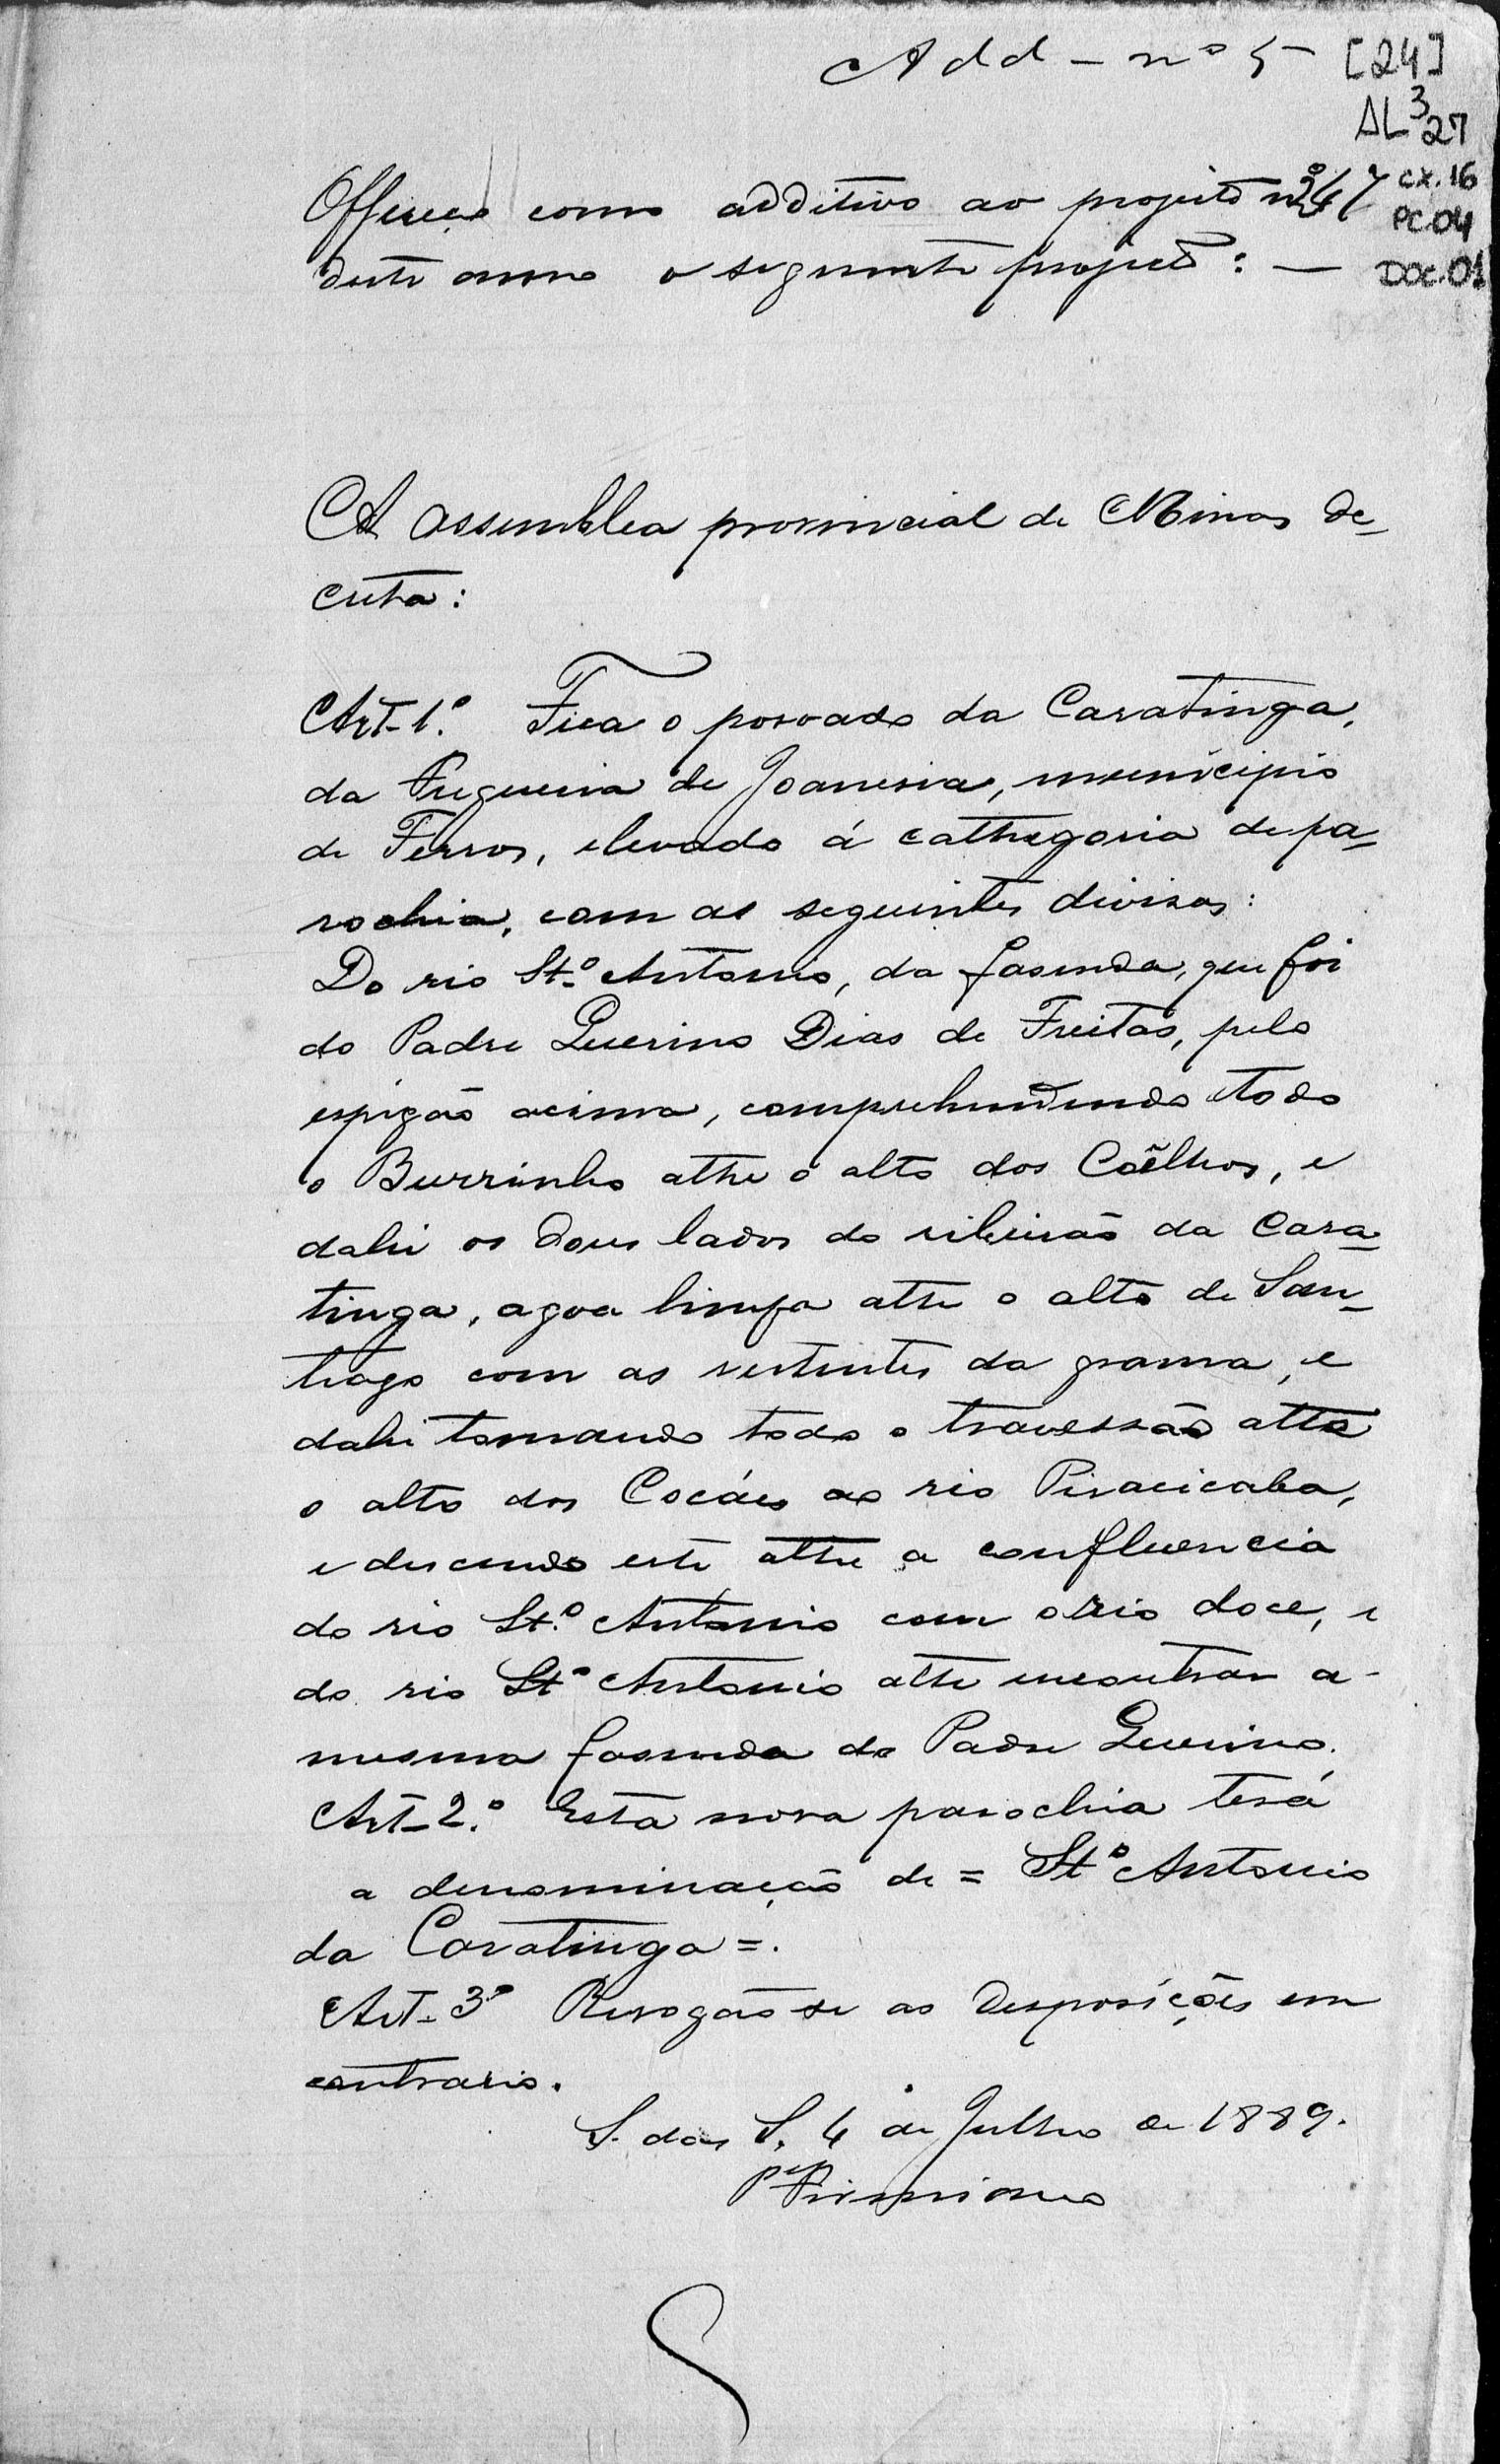 Add - nº 5 [24]
AL³ 27
cx. 16
PC.04
DOC.01
Offereço como additivo ao projecto nº 247
deste anno o seguinte projecto: —
A assemblea provincial de Minas de-
creta:
Art. 1.º Fica o povoado da Caratinga,
da freguesia de Joanesia, municipio
de Ferros, elevado á cathegoria de pa-
rochia, com as seguintes divisas:
Do rio St.º Antonio, da fasenda, que foi
do Padre Querino Dias de Freitas, pelo
espigão acima, comprehendendo todo
o Burrinho athe o alto dos Coêlhos, e
dahi os dous lados do ribeirão da Cara-
tinga, agoa limpa athe o alto de San-
tiago com as vertentes da grama, e
dahi tomando todo o travessão athe
o alto dos Cocáes ao rio Piracicaba,
e descendo este athe a confluencia
do rio St.º Antonio com o rio doce, e
do rio Stº Antonio athe encontrar a
mesma fasenda do Padre Querino.
Art. 2.º Esta nova parochia terá
a denominação de = Stº Antonio
da Caratinga =.
Art. 3º Revogão se as disposições em
contrario.
S. das S. 4 de Julho de 1889.
Pe Firmiano